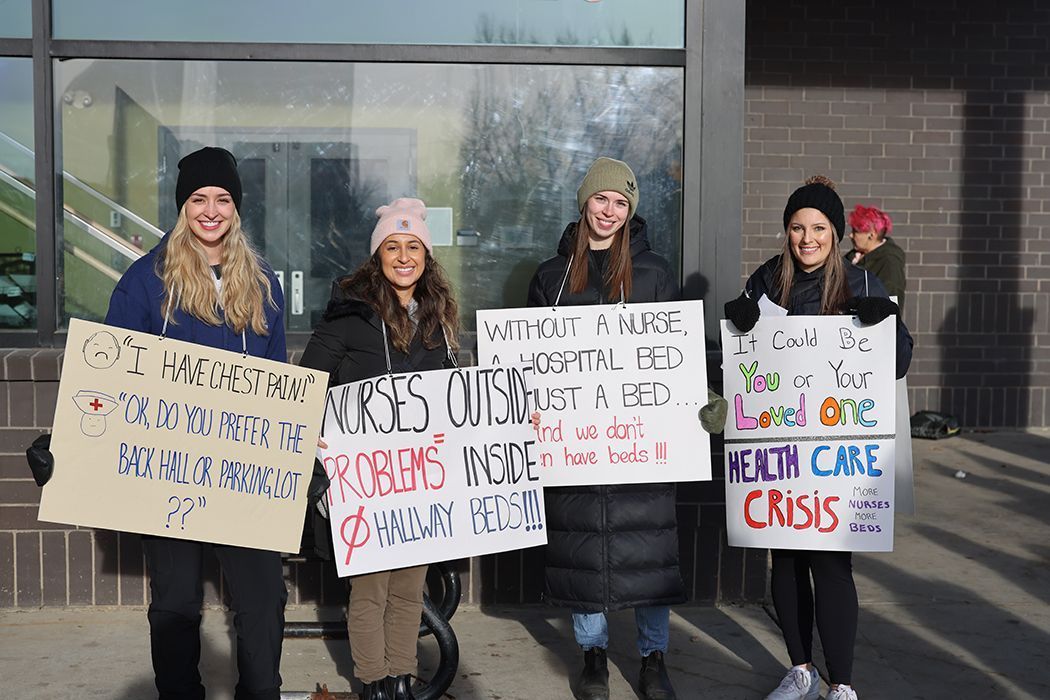 "I HAVE CHEST PAIN!"
"OK, DO YOU PREFER THE
BACK HALL OR PARKING LOT
??"
NURSES OUTSIDE
= PROBLEMS INSIDE
Ø HALLWAY BEDS!!!
WITHOUT A NURSE,
HOSPITAL BED
JUST A BED...
And we don't
have beds!!!
It Could Be
You or Your
Loved One
HEALTH CARE
CRISIS
MORE
NURSES
MORE
BEDS